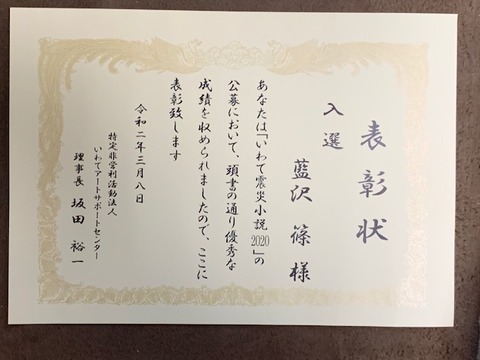 表彰状
入選
藍沢 篠 様
あなたは「いわて震災小説2020」の
公募において、頭書の通り優秀な
成績を収められましたので、ここに
表彰致します
令和二年三月八日
特定非営利活動法人
いわてアートサポートセンター
理事長 坂田 裕一